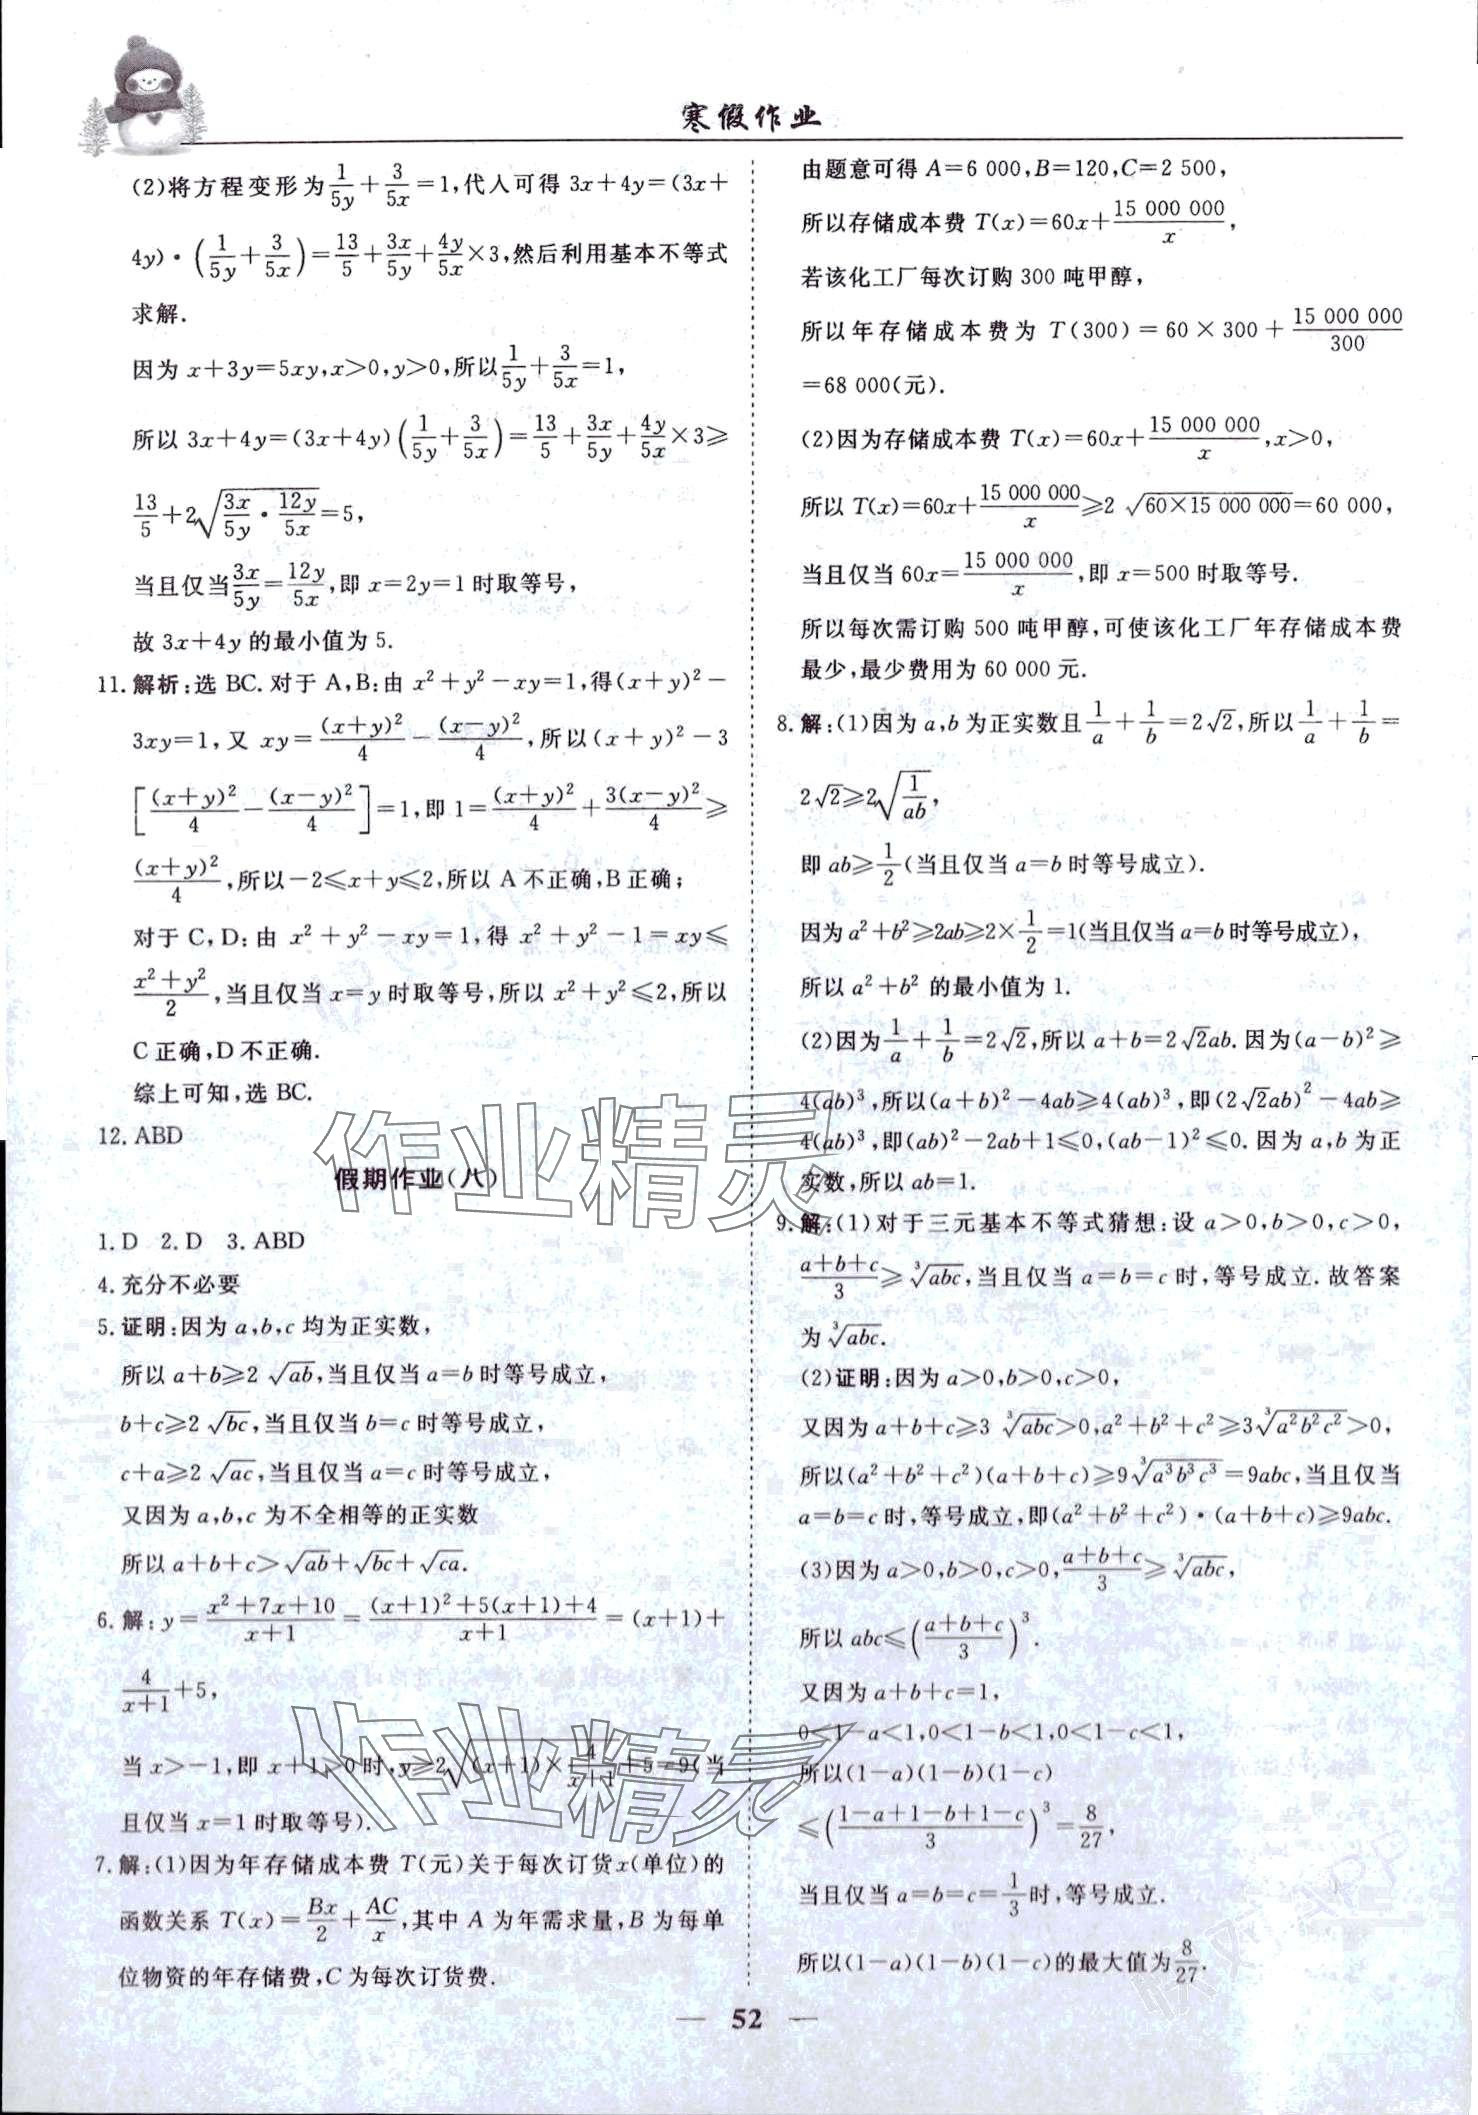 寒假作业
(2)将方程变形为1/(5y)+3/(5x)=1,代人可得 3x+4y=(3x+
4y)·(1/(5y)+3/(5x))=13/5+3x/(5y)+4y/(5x)×3,然后利用基本不等式
求解.
因为 x+3y=5xy,x>0,y>0,所以1/(5y)+3/(5x)=1,
所以 3x+4y=(3x+4y)(1/(5y)+3/(5x))=13/5+3x/(5y)+4y/(5x)×3≥
13/5+2√(3x/(5y)·12y/(5x))=5,
当且仅当3x/(5y)=12y/(5x),即 x=2y=1 时取等号,
故 3x+4y 的最小值为 5.
11.解析:选 BC.对于 A,B:由 x²+y²-xy=1,得(x+y)²-
3xy=1,又 xy=(x+y)²/4-(x-y)²/4,所以(x+y)²-3
[(x+y)²/4-(x-y)²/4]=1,即 1=(x+y)²/4+3(x-y)²/4≥
(x+y)²/4,所以-2≤x+y≤2,所以 A 不正确,B 正确;
对于 C,D:由 x²+y²-xy=1,得 x²+y²-1=xy≤
(x²+y²)/2,当且仅当 x=y 时取等号,所以 x²+y²≤2,所以
C 正确,D 不正确.
综上可知,选 BC.
12.ABD
假期作业(八)
1.D 2.D 3.ABD
4.充分不必要
5.证明:因为 a,b,c 均为正实数,
所以 a+b≥2√(ab),当且仅当 a=b 时等号成立,
b+c≥2√(bc),当且仅当 b=c 时等号成立,
c+a≥2√(ac),当且仅当 a=c 时等号成立,
又因为 a,b,c 为不全相等的正实数
所以 a+b+c>√(ab)+√(bc)+√(ca).
6.解:y=(x²+7x+10)/(x+1)=((x+1)²+5(x+1)+4)/(x+1)=(x+1)+
4/(x+1)+5,
当 x>-1,即 x+1>0 时,y≥2√((x+1)×4/(x+1))+5=9(当
且仅当 x=1 时取等号).
7.解:(1)因为年存储成本费 T(元)关于每次订货 x(单位)的
函数关系 T(x)=Bx/2+AC/x,其中 A 为年需求量,B 为每单
位物资的年存储费,C 为每次订货费.
由题意可得 A=6 000,B=120,C=2 500,
所以存储成本费 T(x)=60x+15 000 000/x,
若该化工厂每次订购 300 吨甲醇,
所以年存储成本费为 T(300)=60×300+15 000 000/300
=68 000(元).
(2)因为存储成本费 T(x)=60x+15 000 000/x,x>0,
所以 T(x)=60x+15 000 000/x≥2√(60×15 000 000)=60 000,
当且仅当 60x=15 000 000/x,即 x=500 时取等号.
所以每次需订购 500 吨甲醇,可使该化工厂年存储成本费
最少,最少费用为 60 000 元.
8.解:(1)因为 a,b 为正实数且1/a+1/b=2√2,所以1/a+1/b=
2√2≥2√(1/(ab)),
即 ab≥1/2(当且仅当 a=b 时等号成立).
因为 a²+b²≥2ab≥2×1/2=1(当且仅当 a=b 时等号成立),
所以 a²+b² 的最小值为 1.
(2)因为1/a+1/b=2√2,所以 a+b=2√2ab.因为(a-b)²≥
4(ab)³,所以(a+b)²-4ab≥4(ab)³,即(2√2ab)²-4ab≥
4(ab)³,即(ab)²-2ab+1≤0,(ab-1)²≤0.因为 a,b 为正
实数,所以 ab=1.
9.解:(1)对于三元基本不等式猜想:设 a>0,b>0,c>0,
(a+b+c)/3≥∛(abc),当且仅当 a=b=c 时,等号成立.故答案
为∛(abc).
(2)证明:因为 a>0,b>0,c>0,
又因为 a+b+c≥3∛(abc)>0,a²+b²+c²≥3∛(a²b²c²)>0,
所以(a²+b²+c²)(a+b+c)≥9∛(a³b³c³)=9abc,当且仅当
a=b=c 时,等号成立,即(a²+b²+c²)·(a+b+c)≥9abc.
(3)因为 a>0,b>0,c>0,(a+b+c)/3≥∛(abc),
所以 abc≤((a+b+c)/3)³.
又因为 a+b+c=1,
0<1-a<1,0<1-b<1,0<1-c<1,
所以(1-a)(1-b)(1-c)
≤((1-a+1-b+1-c)/3)³=8/27,
当且仅当 a=b=c=1/3时,等号成立.
所以(1-a)(1-b)(1-c)的最大值为8/27.
— 52 —
作业精灵
作业精灵